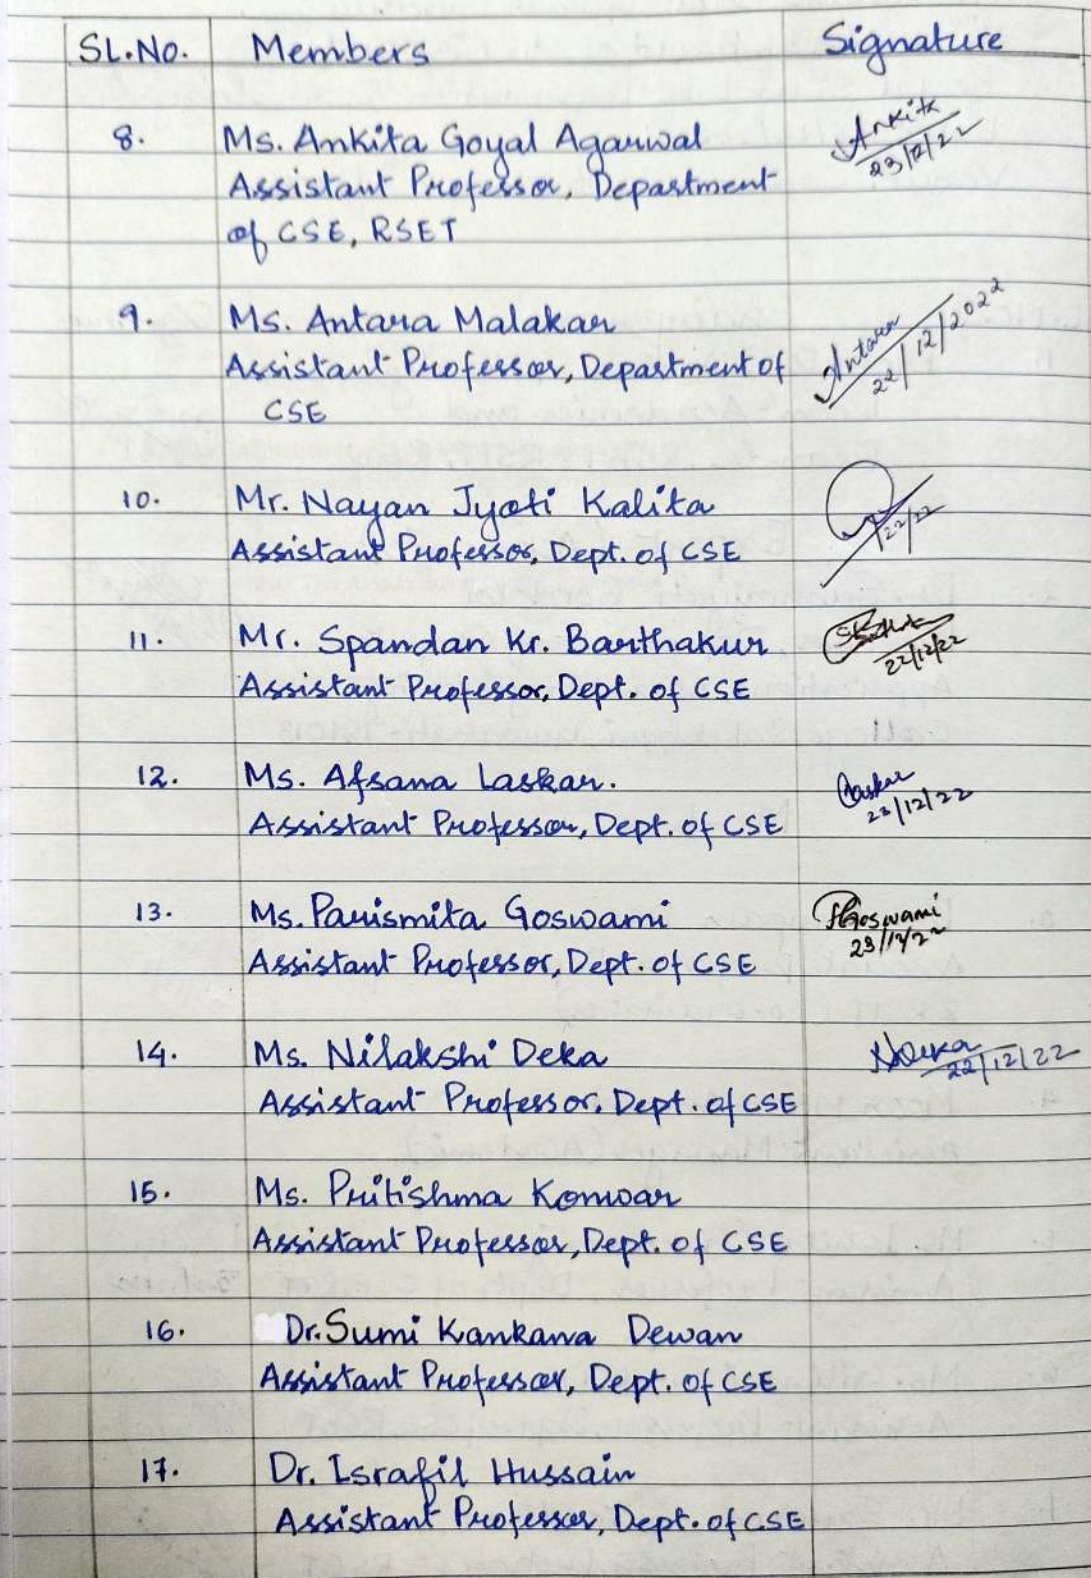 SL.No. Members Signature
8. Ms. Ankita Goyal Agarwal Ankita
Assistant Professor, Department 23/12/22
of CSE, RSET
9. Ms. Antara Malakar Antara
Assistant Professor, Department of 22/12/2022
CSE
10. Mr. Nayan Jyoti Kalita
Assistant Professor, Dept. of CSE
11. Mr. Spandan Kr. Barthakur
Assistant Professor, Dept. of CSE 22/12/22
12. Ms. Afsana Laskar. Laskar
Assistant Professor, Dept. of CSE 23/12/22
13. Ms. Parismita Goswami PGoswami
Assistant Professor, Dept. of CSE 23/12/22
14. Ms. Nilakshi Deka NDeka
Assistant Professor, Dept. of CSE 22/12/22
15. Ms. Pritishma Konwar
Assistant Professor, Dept. of CSE
16. Dr. Sumi Kankana Dewan
Assistant Professor, Dept. of CSE
17. Dr. Israfil Hussain
Assistant Professor, Dept. of CSE